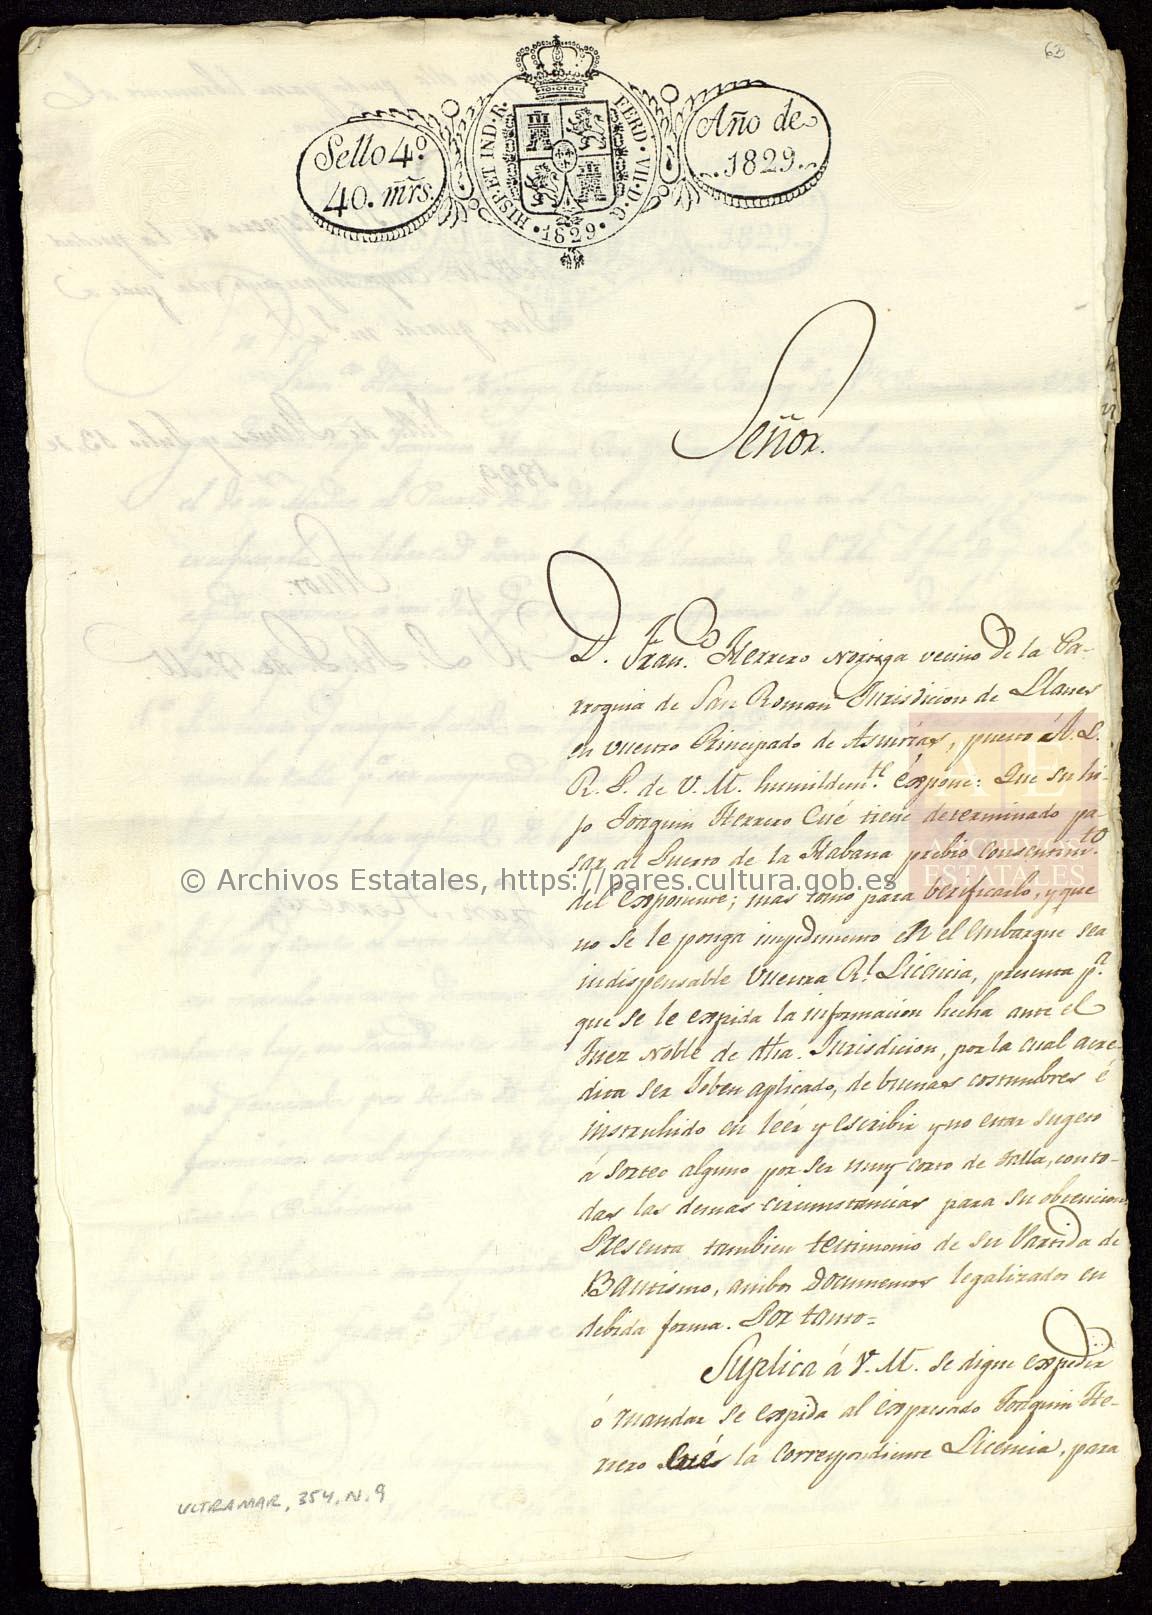 63
Sello 4º.
40. mrs.
HISP. ET IND. R.
FERD. VII. D. G.
· 1829 ·
Año de
1829.
Señor.
D. Franco. Herrero Noriega vecino de la Pa-
rroquia de San Roman Jurisdicion de Llanes
en vuestro Principado de Asturias, puesto á A. L.
R. P. de V. M. humildemte. éxpone: Que su hi-
jo Joaquin Herrero Cué tiene determinado pa-
sar al Puerto de la Habana prebio consentimto.
del Exponente; mas como para berificarlo, y que
no se le ponga impedimento en el embarque sea
indispensable vuestra Rl. Licencia, presenta pa.
que se le expida la informacion hecha ante el
Juez Noble de dha. Jurisdicion, por la cual acre-
dita ser Joben aplicado, de buenas costumbres é
instruhido en leér y escribir y no estar sugeto
á sorteo alguno por ser muy corto de talla, con to-
das las demas circunstancias para su obtencion.
Presenta tambien testimonio de su Partida de
Bautismo, ambos Documentos legalizados en
debida forma. Por tanto=
Suplica á V. M. se digne expedir
ó mandar se expida al expresado Joaquin He-
rrero Cué la correspondiente Licencia, para
ULTRAMAR, 354, N. 9
© Archivos Estatales, https://pares.cultura.gob.es
AE
ARCHIVOS
ESTATALES